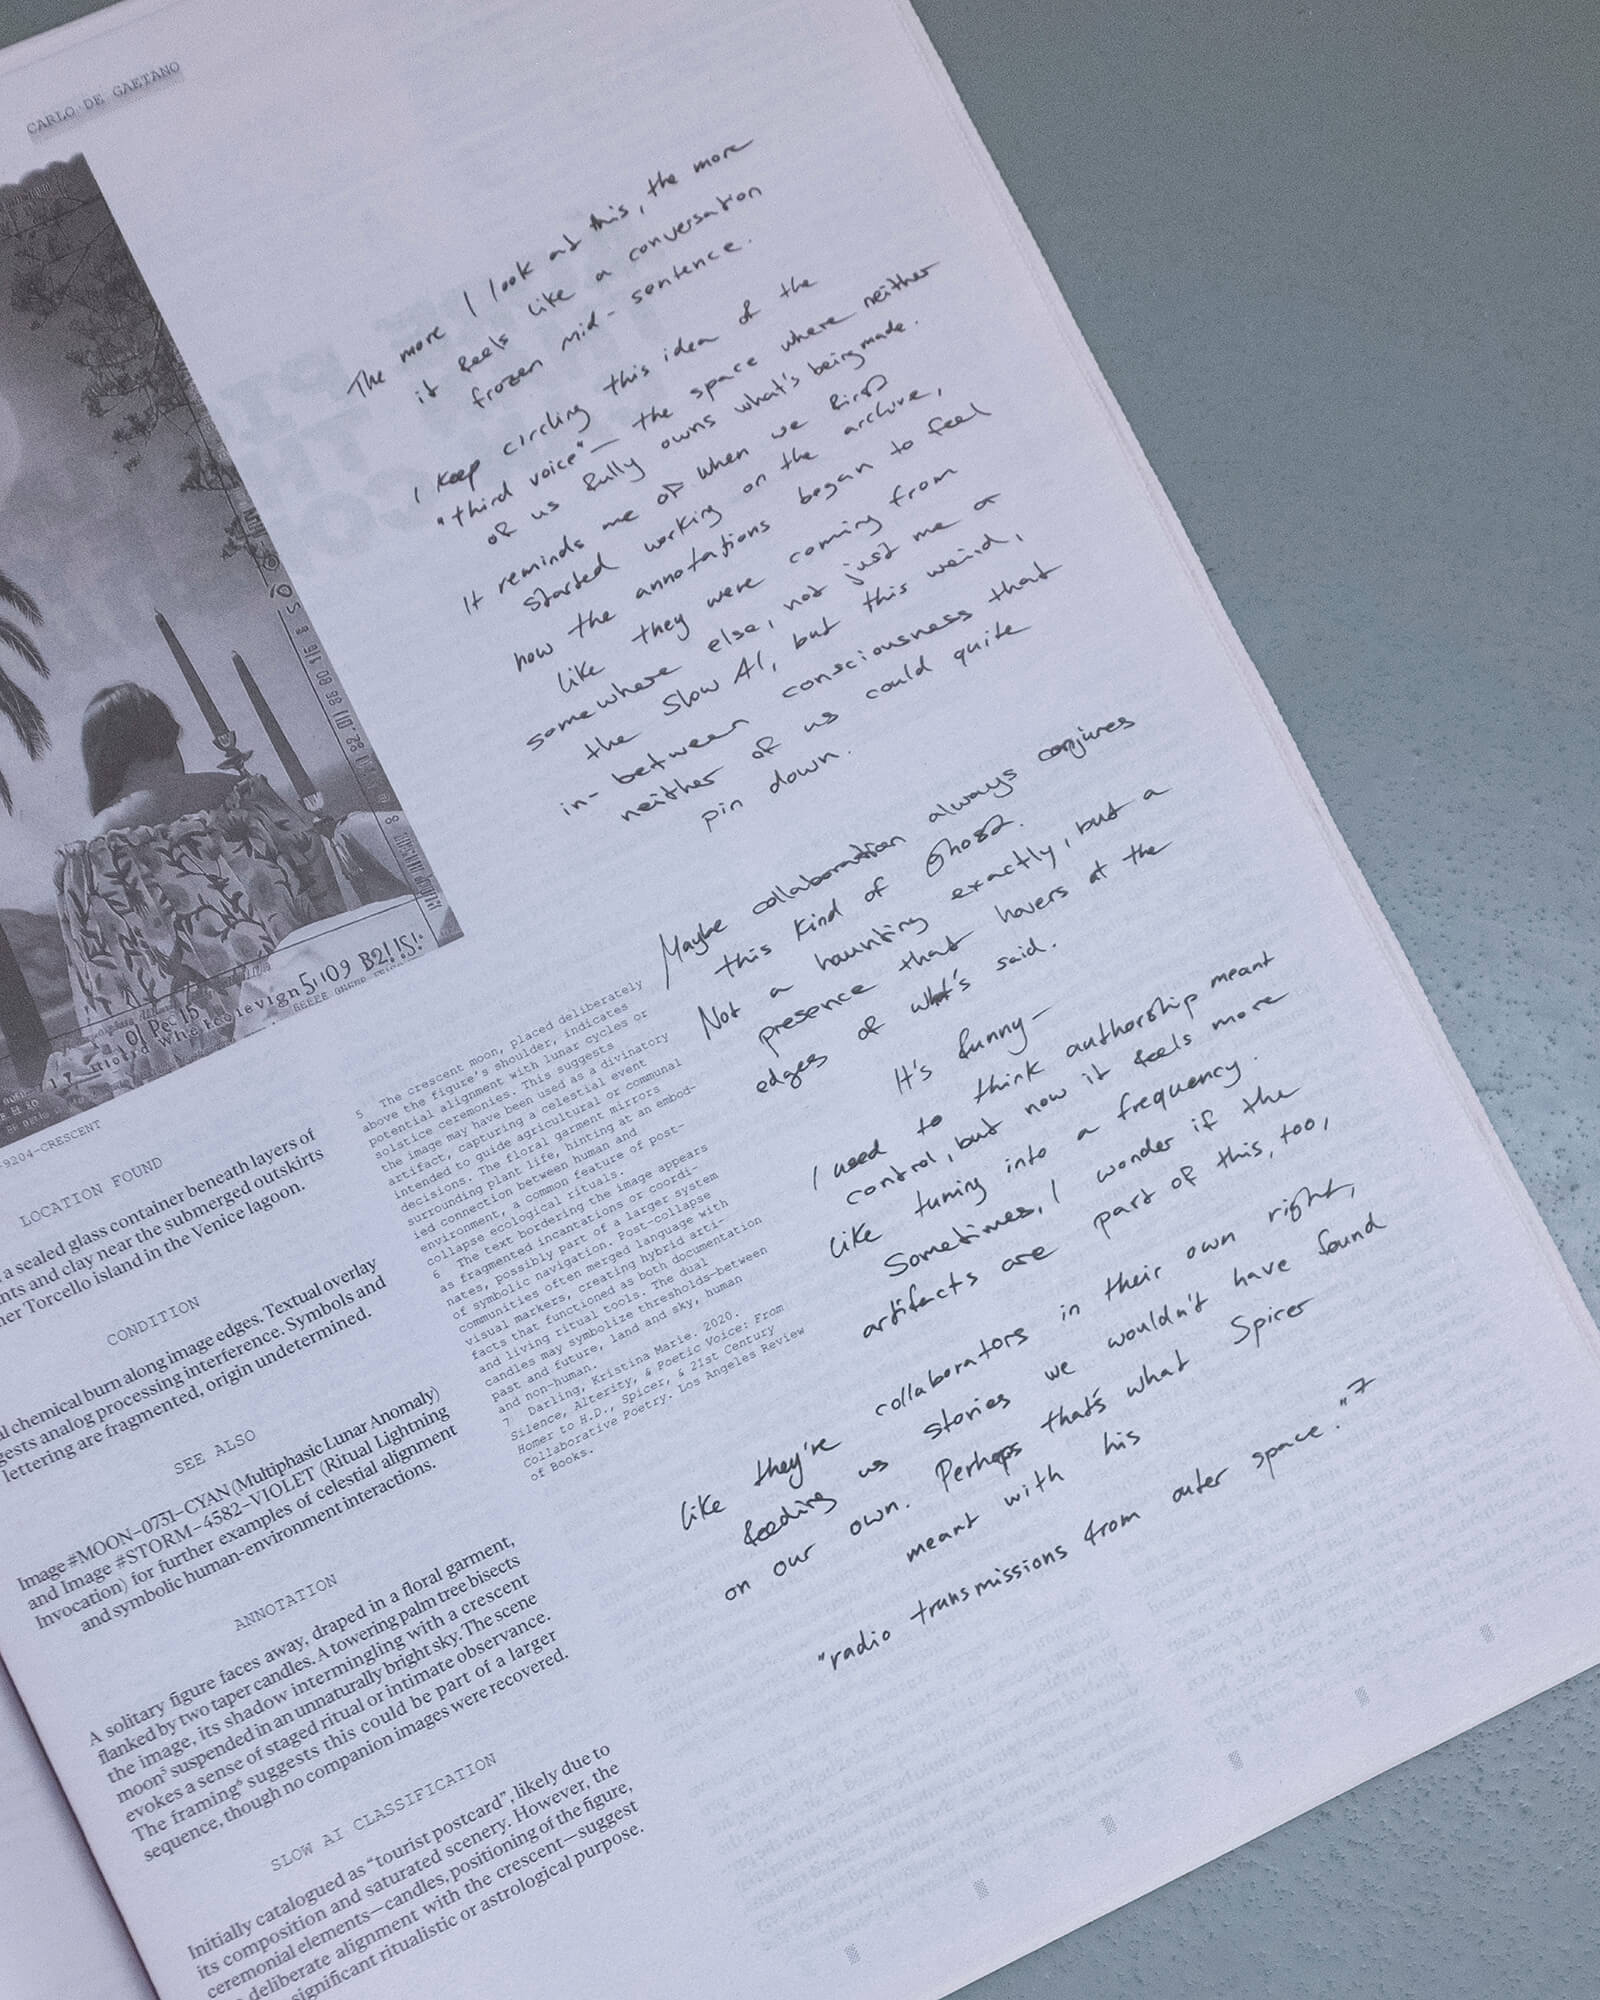 CARLO DE GAETANO
01 Dec 15
-9204-CRESCENT
LOCATION FOUND
a sealed glass container beneath layers of
and clay near the submerged outskirts
Torcello island in the Venice lagoon.
CONDITION
chemical burn along image edges. Textual overlay
analog processing interference. Symbols and
lettering are fragmented, origin undetermined.
SEE ALSO
Image #MOON-0731-CYAN (Multiphasic Lunar Anomaly)
and Image #STORM-4582-VIOLET (Ritual Lightning
Invocation) for further examples of celestial alignment
and symbolic human-environment interactions.
ANNOTATION
A solitary figure faces away, draped in a floral garment,
flanked by two taper candles. A towering palm tree bisects
the image, its shadow intermingling with a crescent
moon⁵ suspended in an unnaturally bright sky. The scene
evokes a sense of staged ritual or intimate observance.
The framing⁶ suggests this could be part of a larger
sequence, though no companion images were recovered.
SLOW AI CLASSIFICATION
Initially catalogued as “tourist postcard”, likely due to
its composition and saturated scenery. However, the
ceremonial elements—candles, positioning of the figure,
deliberate alignment with the crescent—suggest
significant ritualistic or astrological purpose.
5 The crescent moon, placed deliberately
above the figure's shoulder, indicates
potential alignment with lunar cycles or
solstice ceremonies. This suggests
the image may have been used as a divinatory
artifact, capturing a celestial event
intended to guide agricultural or communal
decisions. The floral garment mirrors
surrounding plant life, hinting at an embod-
ied connection between human and
environment, a common feature of post-
collapse ecological rituals.
6 The text bordering the image appears
as fragmented incantations or coordi-
nates, possibly part of a larger system
of symbolic navigation. Post-collapse
communities often merged language with
visual markers, creating hybrid arti-
facts that functioned as both documentation
and living ritual tools. The dual
candles may symbolize thresholds—between
past and future, land and sky, human
and non-human.
7 Darling, Kristina Marie. 2020.
Silence, Alterity, & Poetic Voice: From
Homer to H.D., Spicer, & 21st Century
Collaborative Poetry. Los Angeles Review
of Books.
The more I look at this, the more
it feels like a conversation
frozen mid-sentence.
I keep circling this idea of the
"third voice"— the space where neither
of us fully owns what's being made.
It reminds me of when we first
started working on the archive,
how the annotations began to feel
like they were coming from
somewhere else, not just me or
the Slow AI, but this weird,
in-between consciousness that
neither of us could quite
pin down.
Maybe collaboration always conjures
this kind of ghost.
Not a haunting exactly, but a
presence that hovers at the
edges of what's said.
It's funny—
I used to think authorship meant
control, but now it feels more
like tuning into a frequency.
Sometimes, I wonder if the
artifacts are part of this, too,
like they're collaborators in their own right,
feeding us stories we wouldn't have found
on our own. Perhaps that's what Spicer
meant with his
"radio transmissions from outer space."7